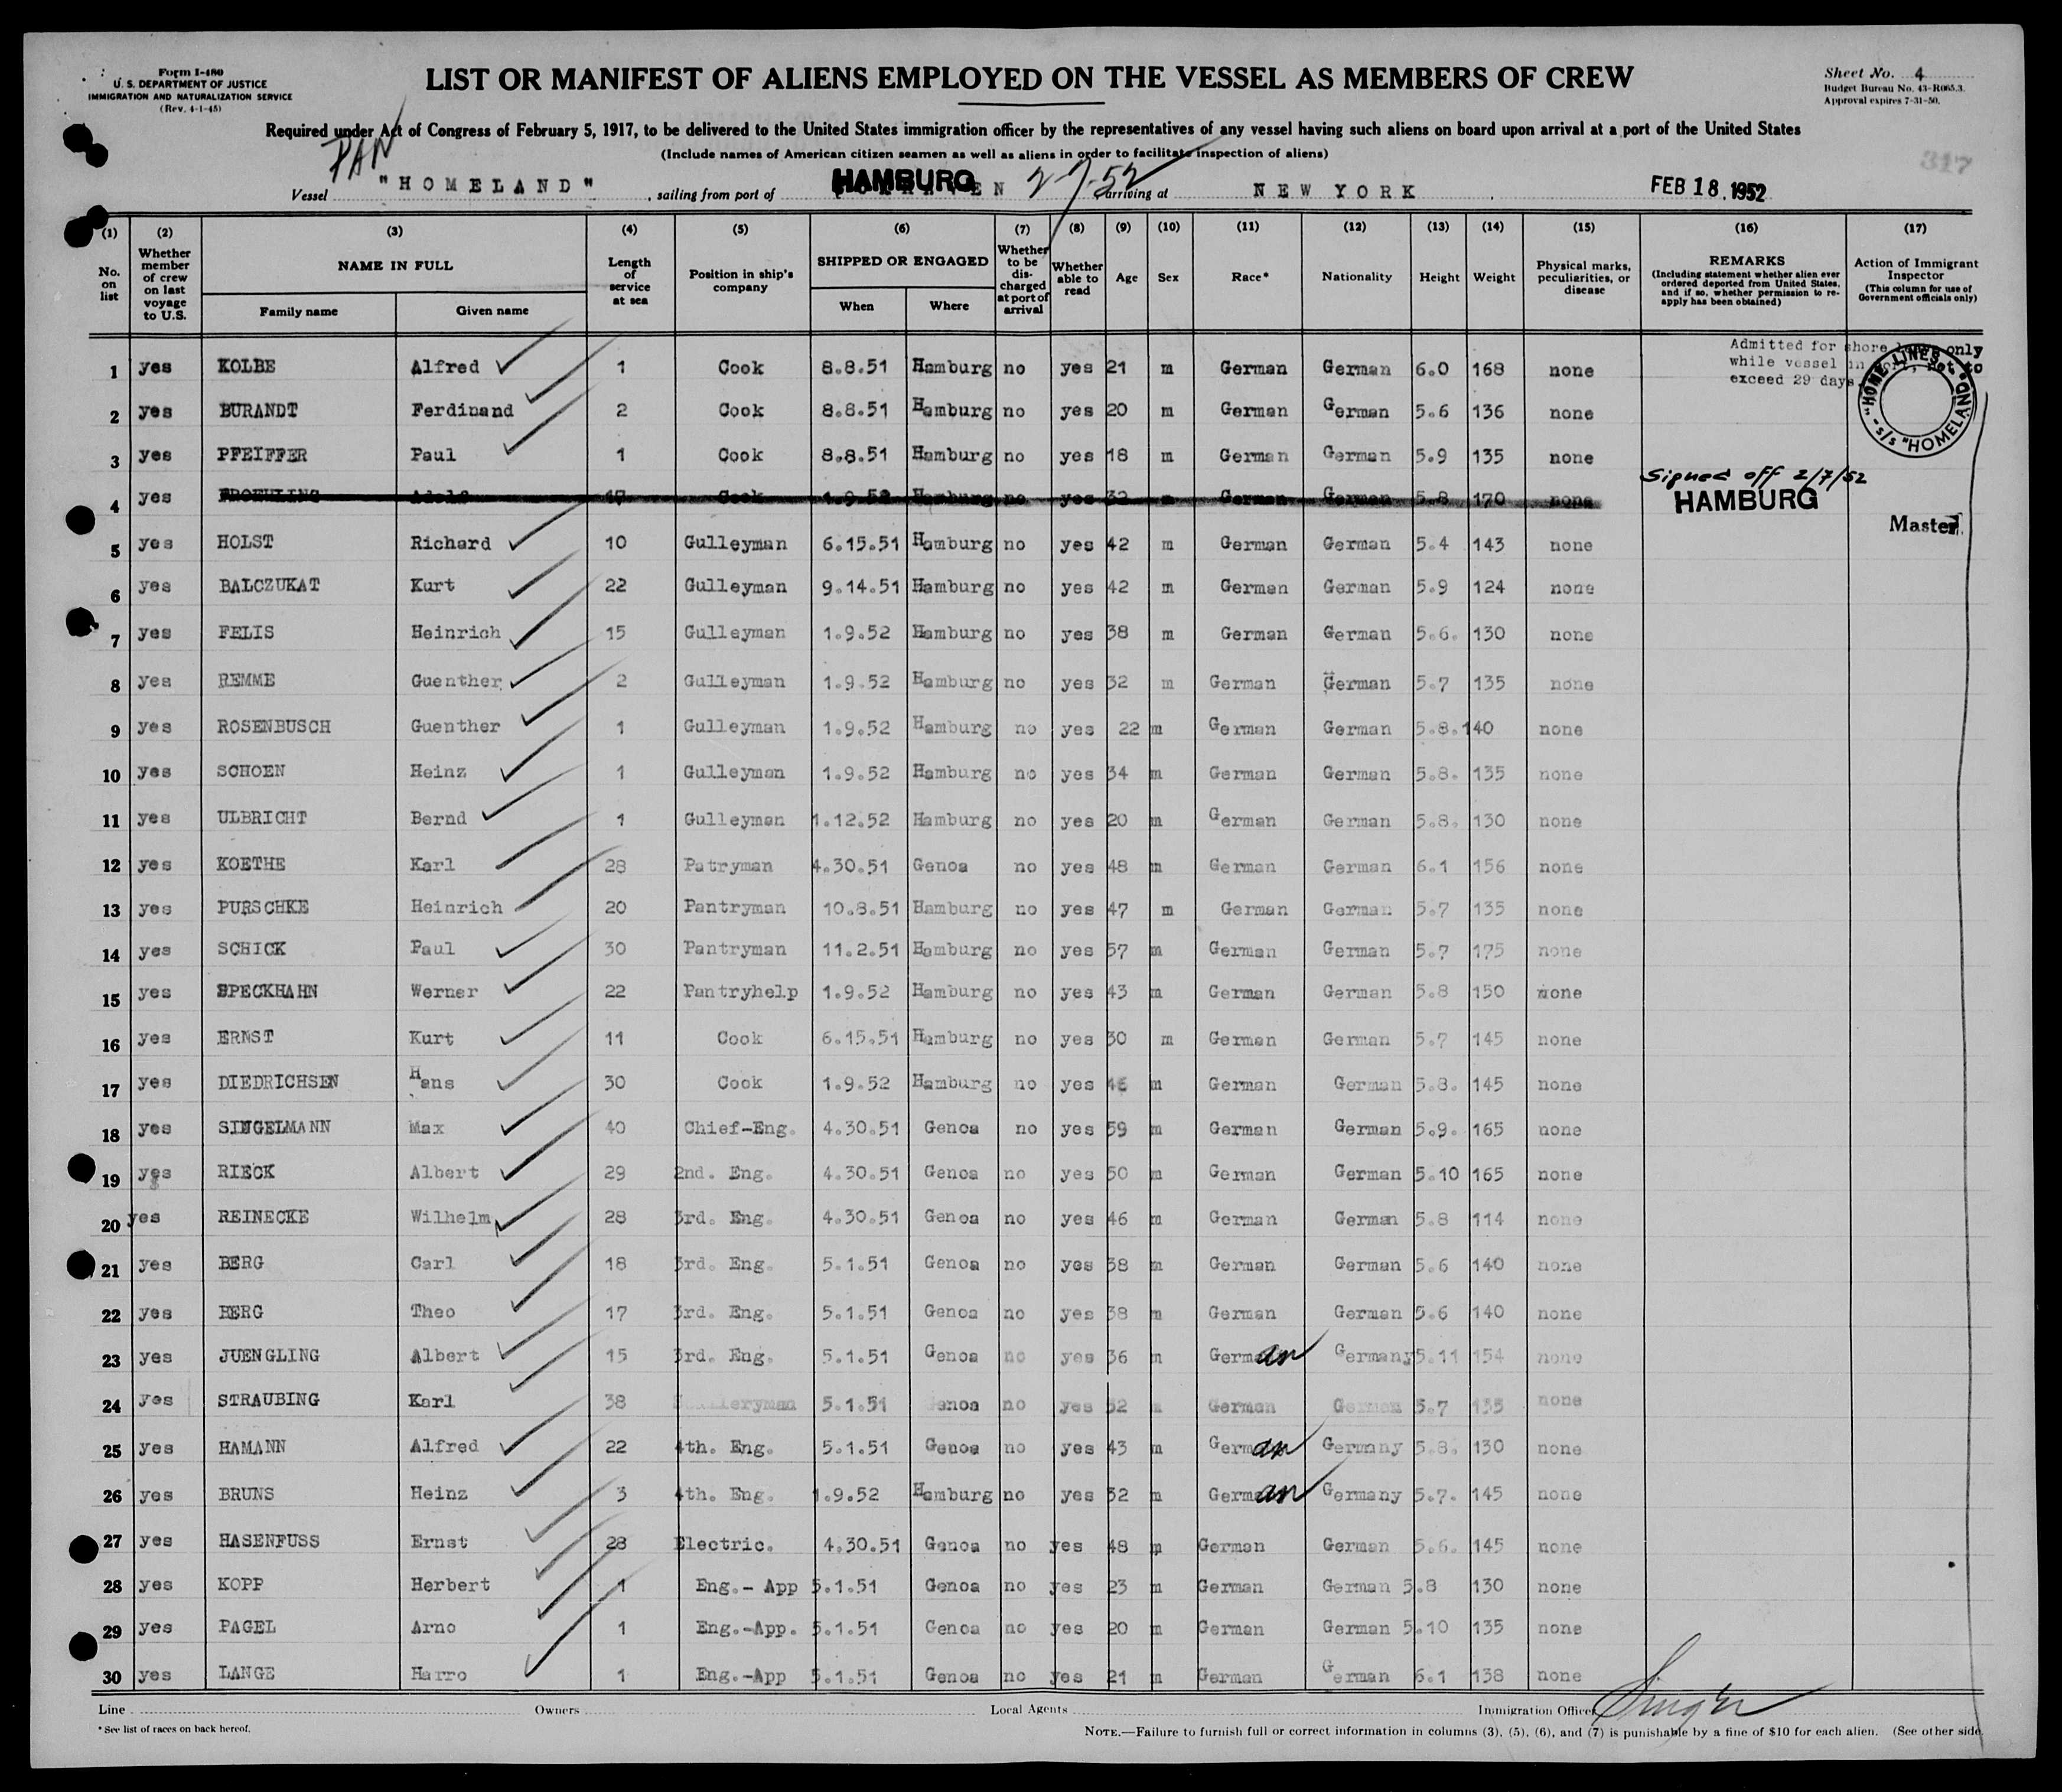 Form I-480
U. S. DEPARTMENT OF JUSTICE
IMMIGRATION AND NATURALIZATION SERVICE
(Rev. 4-1-45)
LIST OR MANIFEST OF ALIENS EMPLOYED ON THE VESSEL AS MEMBERS OF CREW
Sheet No. 4
Budget Bureau No. 43-R065.3.
Approval expires 7-31-50.
Required under Act of Congress of February 5, 1917, to be delivered to the United States immigration officer by the representatives of any vessel having such aliens on board upon arrival at a port of the United States
(Include names of American citizen seamen as well as aliens in order to facilitate inspection of aliens)
317
PAN
Vessel "HOMELAND", sailing from port of HAMBURG 2-7-52 arriving at NEW YORK. FEB 18. 1952
(1) No. on list
(2) Whether member of crew on last voyage to U.S.
(3) NAME IN FULL Family name Given name
(4) Length of service at sea
(5) Position in ship's company
(6) SHIPPED OR ENGAGED When Where
(7) Whether to be discharged at port of arrival
(8) Whether able to read
(9) Age
(10) Sex
(11) Race*
(12) Nationality
(13) Height
(14) Weight
(15) Physical marks, peculiarities, or disease
(16) REMARKS (Including statement whether alien ever ordered deported from United States, and if so, whether permission to reapply has been obtained)
(17) Action of Immigrant Inspector (This column for use of Government officials only)
Admitted for shore only
while vessel in port, not to
exceed 29 days
"HOME LINES" s/s "HOMELAND"
1 yes KOLBE Alfred 1 Cook 8.8.51 Hamburg no yes 21 m German German 6.0 168 none
2 yes BURANDT Ferdinand 2 Cook 8.8.51 Hamburg no yes 20 m German German 5.6 136 none
3 yes PFEIFFER Paul 1 Cook 8.8.51 Hamburg no yes 18 m German German 5.9 135 none
4 yes FROEHLING Adolf 17 Cook 1.9.52 Hamburg no yes 32 m German German 5.8 170 none Signed off 2/7/52
HAMBURG
Master
5 yes HOLST Richard 10 Gulleyman 6.15.51 Hamburg no yes 42 m German German 5.4 143 none
6 yes BALCZUKAT Kurt 22 Gulleyman 9.14.51 Hamburg no yes 42 m German German 5.9 124 none
7 yes FELIS Heinrich 15 Gulleyman 1.9.52 Hamburg no yes 38 m German German 5.6. 130 none
8 yes REMME Guenther 2 Gulleyman 1.9.52 Hamburg no yes 32 m German German 5.7 135 none
9 yes ROSENBUSCH Guenther 1 Gulleyman 1.9.52 Hamburg no yes 22 m German German 5.8. 140 none
10 yes SCHOEN Heinz 1 Gulleyman 1.9.52 Hamburg no yes 34 m German German 5.8. 135 none
11 yes ULBRICHT Bernd 1 Gulleyman 1.12.52 Hamburg no yes 20 m German German 5.8. 130 none
12 yes KOETHE Karl 28 Patryman 4.30.51 Genoa no yes 48 m German German 6.1 156 none
13 yes PURSCHKE Heinrich 20 Pantryman 10.8.51 Hamburg no yes 47 m German German 5.7 135 none
14 yes SCHICK Paul 30 Pantryman 11.2.51 Hamburg no yes 57 m German German 5.7 175 none
15 yes SPECKHAHN Werner 22 Pantryhelp 1.9.52 Hamburg no yes 43 m German German 5.8 150 none
16 yes ERNST Kurt 11 Cook 6.15.51 Hamburg no yes 30 m German German 5.7 145 none
17 yes DIEDRICHSEN Hans 30 Cook 1.9.52 Hamburg no yes m German German 5.8. 145 none
18 yes SINGELMANN Max 40 Chief-Eng. 4.30.51 Genoa no yes 59 m German German 5.9. 165 none
19 yes RIECK Albert 29 2nd. Eng. 4.30.51 Genoa no yes 50 m German German 5.10 165 none
20 yes REINECKE Wilhelm 28 3rd. Eng. 4.30.51 Genoa no yes 46 m German German 5.8 114 none
21 yes BERG Carl 18 3rd. Eng. 5.1.51 Genoa no yes 38 m German German 5.6 140 none
22 yes BERG Theo 17 3rd. Eng. 5.1.51 Genoa no yes 38 m German German 5.6 140 none
23 yes JUENGLING Albert 15 3rd. Eng. 5.1.51 Genoa no yes 36 m German Germany 5.11 154 none
24 yes STRAUBING Karl 38 5.1.51 Genoa no yes 52 m German German 5.7 135 none
25 yes HAMANN Alfred 22 4th. Eng. 5.1.51 Genoa no yes 43 m German Germany 5.8. 130 none
26 yes BRUNS Heinz 3 4th. Eng. 1.9.52 Hamburg no yes 32 m German Germany 5.7. 145 none
27 yes HASENFUSS Ernst 28 Electric. 4.30.51 Genoa no yes 48 m German German 5.6. 145 none
28 yes KOPP Herbert 1 Eng.- App 5.1.51 Genoa no yes 23 m German German 5.8 130 none
29 yes PAGEL Arno 1 Eng.-App. 5.1.51 Genoa no yes 20 m German German 5.10 135 none
30 yes LANGE Harro 1 Eng.-App 5.1.51 Genoa no yes 21 m German German 6.1 138 none
Line Owners Local Agents Immigration Officer
* See list of races on back hereof.
NOTE.—Failure to furnish full or correct information in columns (3), (5), (6), and (7) is punishable by a fine of $10 for each alien. (See other side